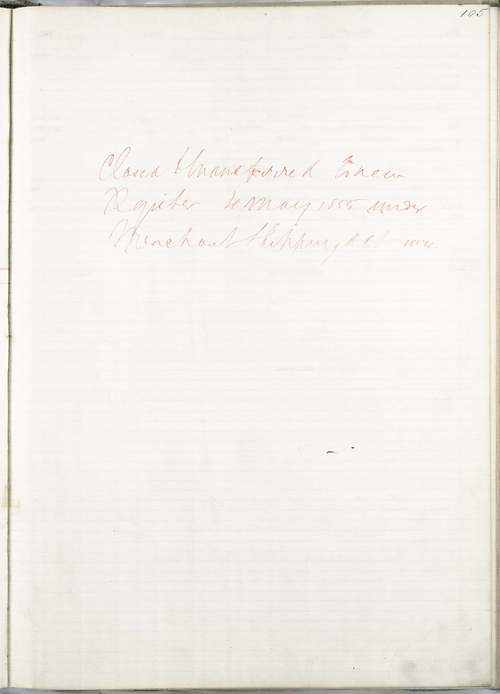 105
Closed & Transferred to new
Register May 1855 under
Merchant Shipping Act